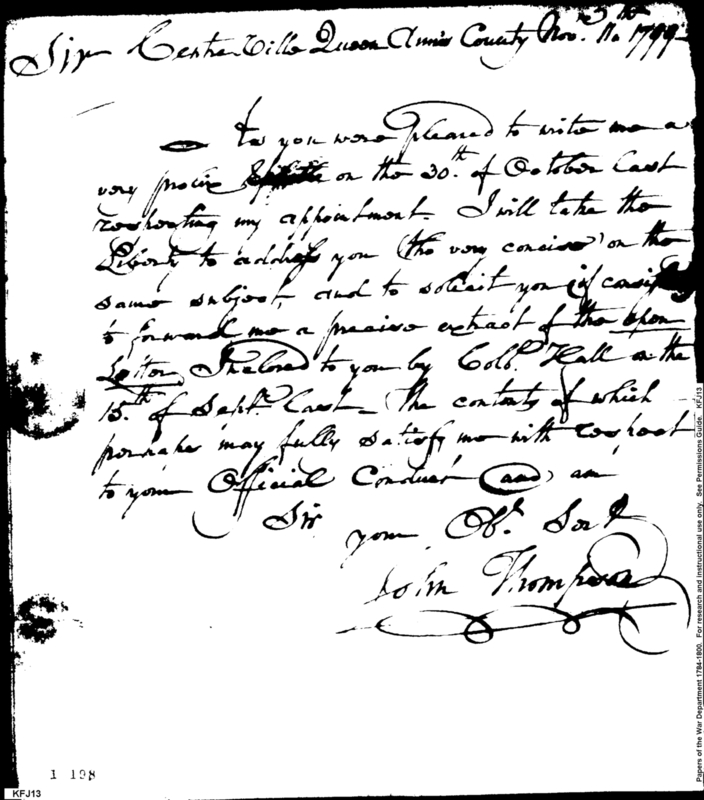 Sir Centre Ville Queen Anns County Novr. 11th 1799
As you were pleased to write me a
very on the 30th. of October Last
respecting my appointment. I will take the
Liberty to address you (tho very concise) on the
same subject, and to solicit you if
to forward me a precise extract of the open
Letter, Inclosed to you by Colo. Hall on the
15th of Septr. Last. The contents of which
perhaps may fully satisfy me with respect
to your Official Conduct (and) am
Sir
your Obt. Servt
John Thompson
1 198
KFJ13
Papers of the War Department 1784-1800. For research and instructional use only. See Permissions Guide. KFJ13